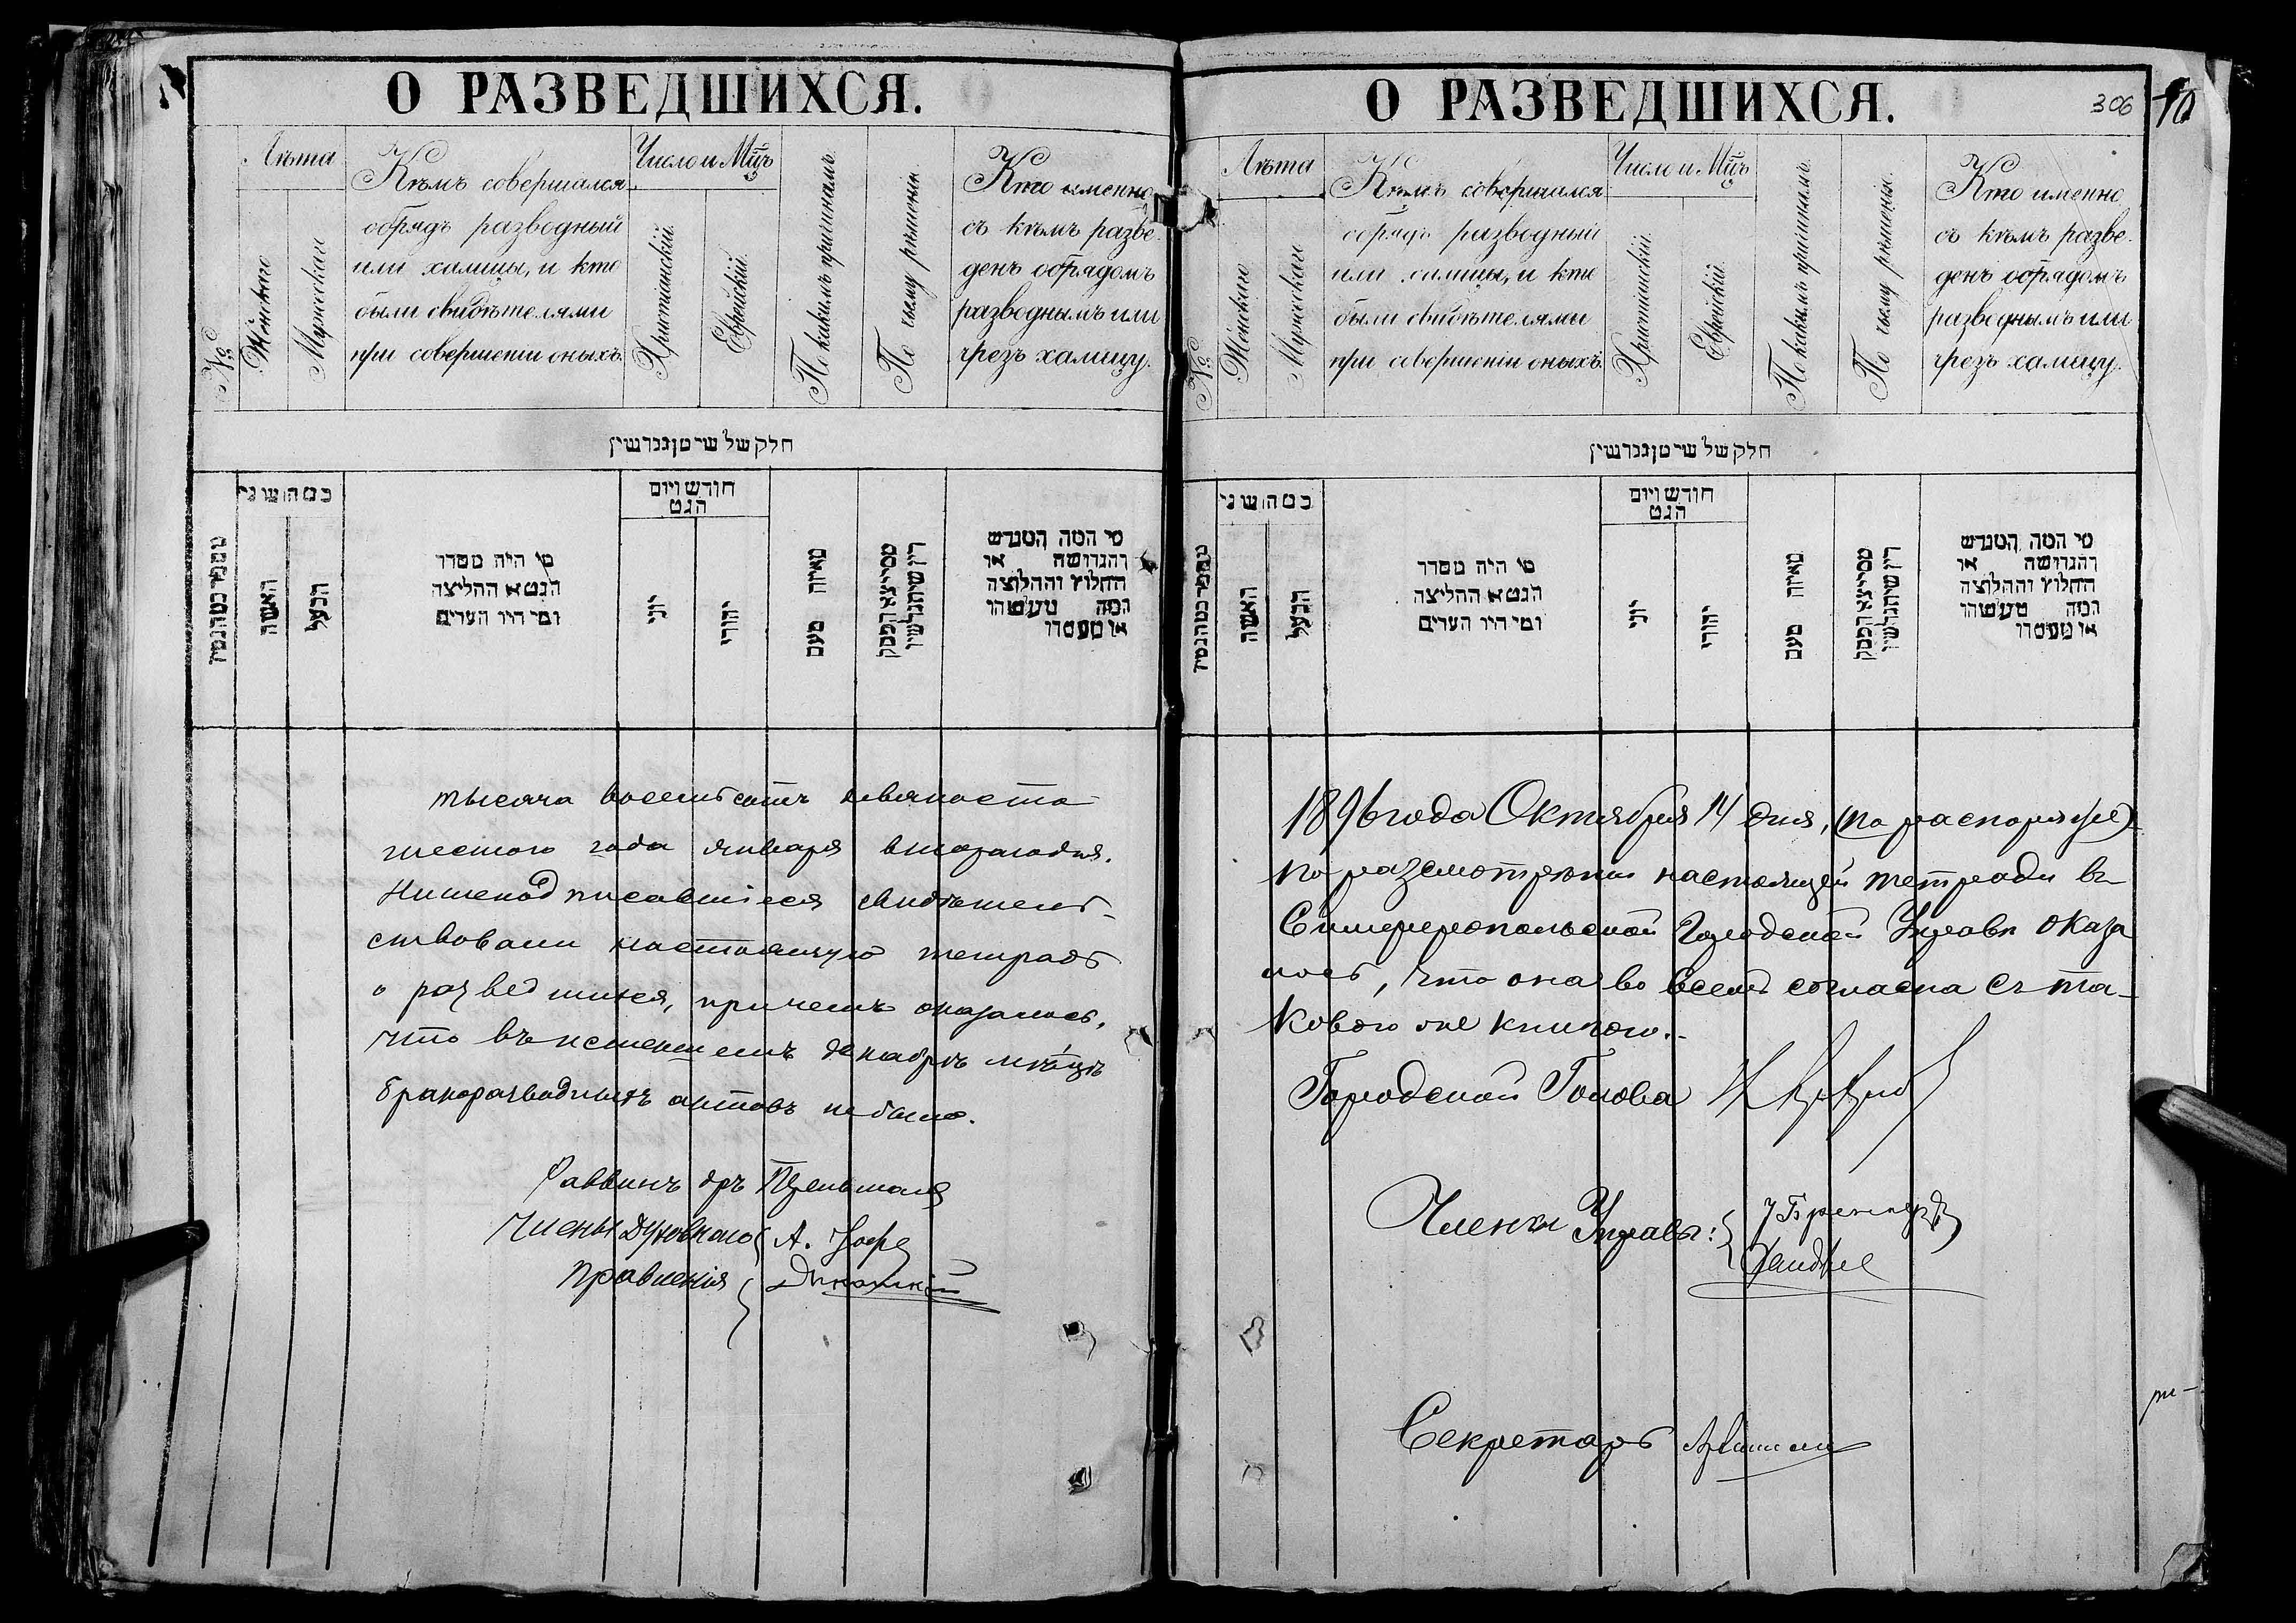 О РАЗВЕДШИХСЯ.
№
Лѣта
Женскаго
Мужескаго
Кѣмъ совершался
обрядъ разводный
или халицы, и кто
были свидѣтелями
при совершеніи оныхъ.
Число и Мц̃ъ
Христіанскій.
Еврейскій.
По какимъ причинамъ.
По чьему рѣшенію.
Кто именно
съ кѣмъ разве-
денъ обрядомъ
разводнымъ или
чрезъ халицу.
חלק של שיטן גנרשין
כמה שני
האשה
הבעל
מי היה מסדר
הגט או החליצה
ומי היו העדים
חודש ויום
הגט
יוני
יהודי
מאיזה טעם
מי המה המגרש
והגרושה או
החלוץ והחלוצה
המה מעשהו
או מעמדו
тысяча восемьсотъ девяноста
шестого года января второго дня.
Нижеподписавшіеся свидѣтель-
ствовали настоящую тетрадь
о разведшихся, причемъ оказалось,
что въ истекшемъ декабрѣ мѣсяцѣ
бракоразводныхъ актовъ не было.
Раввинъ
Члены Духовнаго А. Іофе
Правленія
О РАЗВЕДШИХСЯ.
306
10
№
Лѣта
Женскаго
Мужескаго
Кѣмъ совершался
обрядъ разводный
или халицы, и кто
были свидѣтелями
при совершеніи оныхъ.
Число и Мц̃ъ
Христіанскій.
Еврейскій.
По какимъ причинамъ.
По чьему рѣшенію.
Кто именно
съ кѣмъ разве-
денъ обрядомъ
разводнымъ или
чрезъ халицу.
חלק של שיטן גנרשין
כמה שני
האשה
הבעל
מי היה מסדר
הגט או החליצה
ומי היו העדים
חודש ויום
הגט
יוני
יהודי
מאיזה טעם
מי המה המגרש
והגרושה או
החלוץ והחלוצה
המה מעשהו
או מעמדו
1896 года Октября 14 дня, (по распоряже)
по разсмотрѣніи настоящей тетради въ
Симферопольской Городской Управѣ оказа
лось, что она во всемъ согласна съ та-
ковою же книгою.
Городской Голова
Члены Управы:
Секретарь